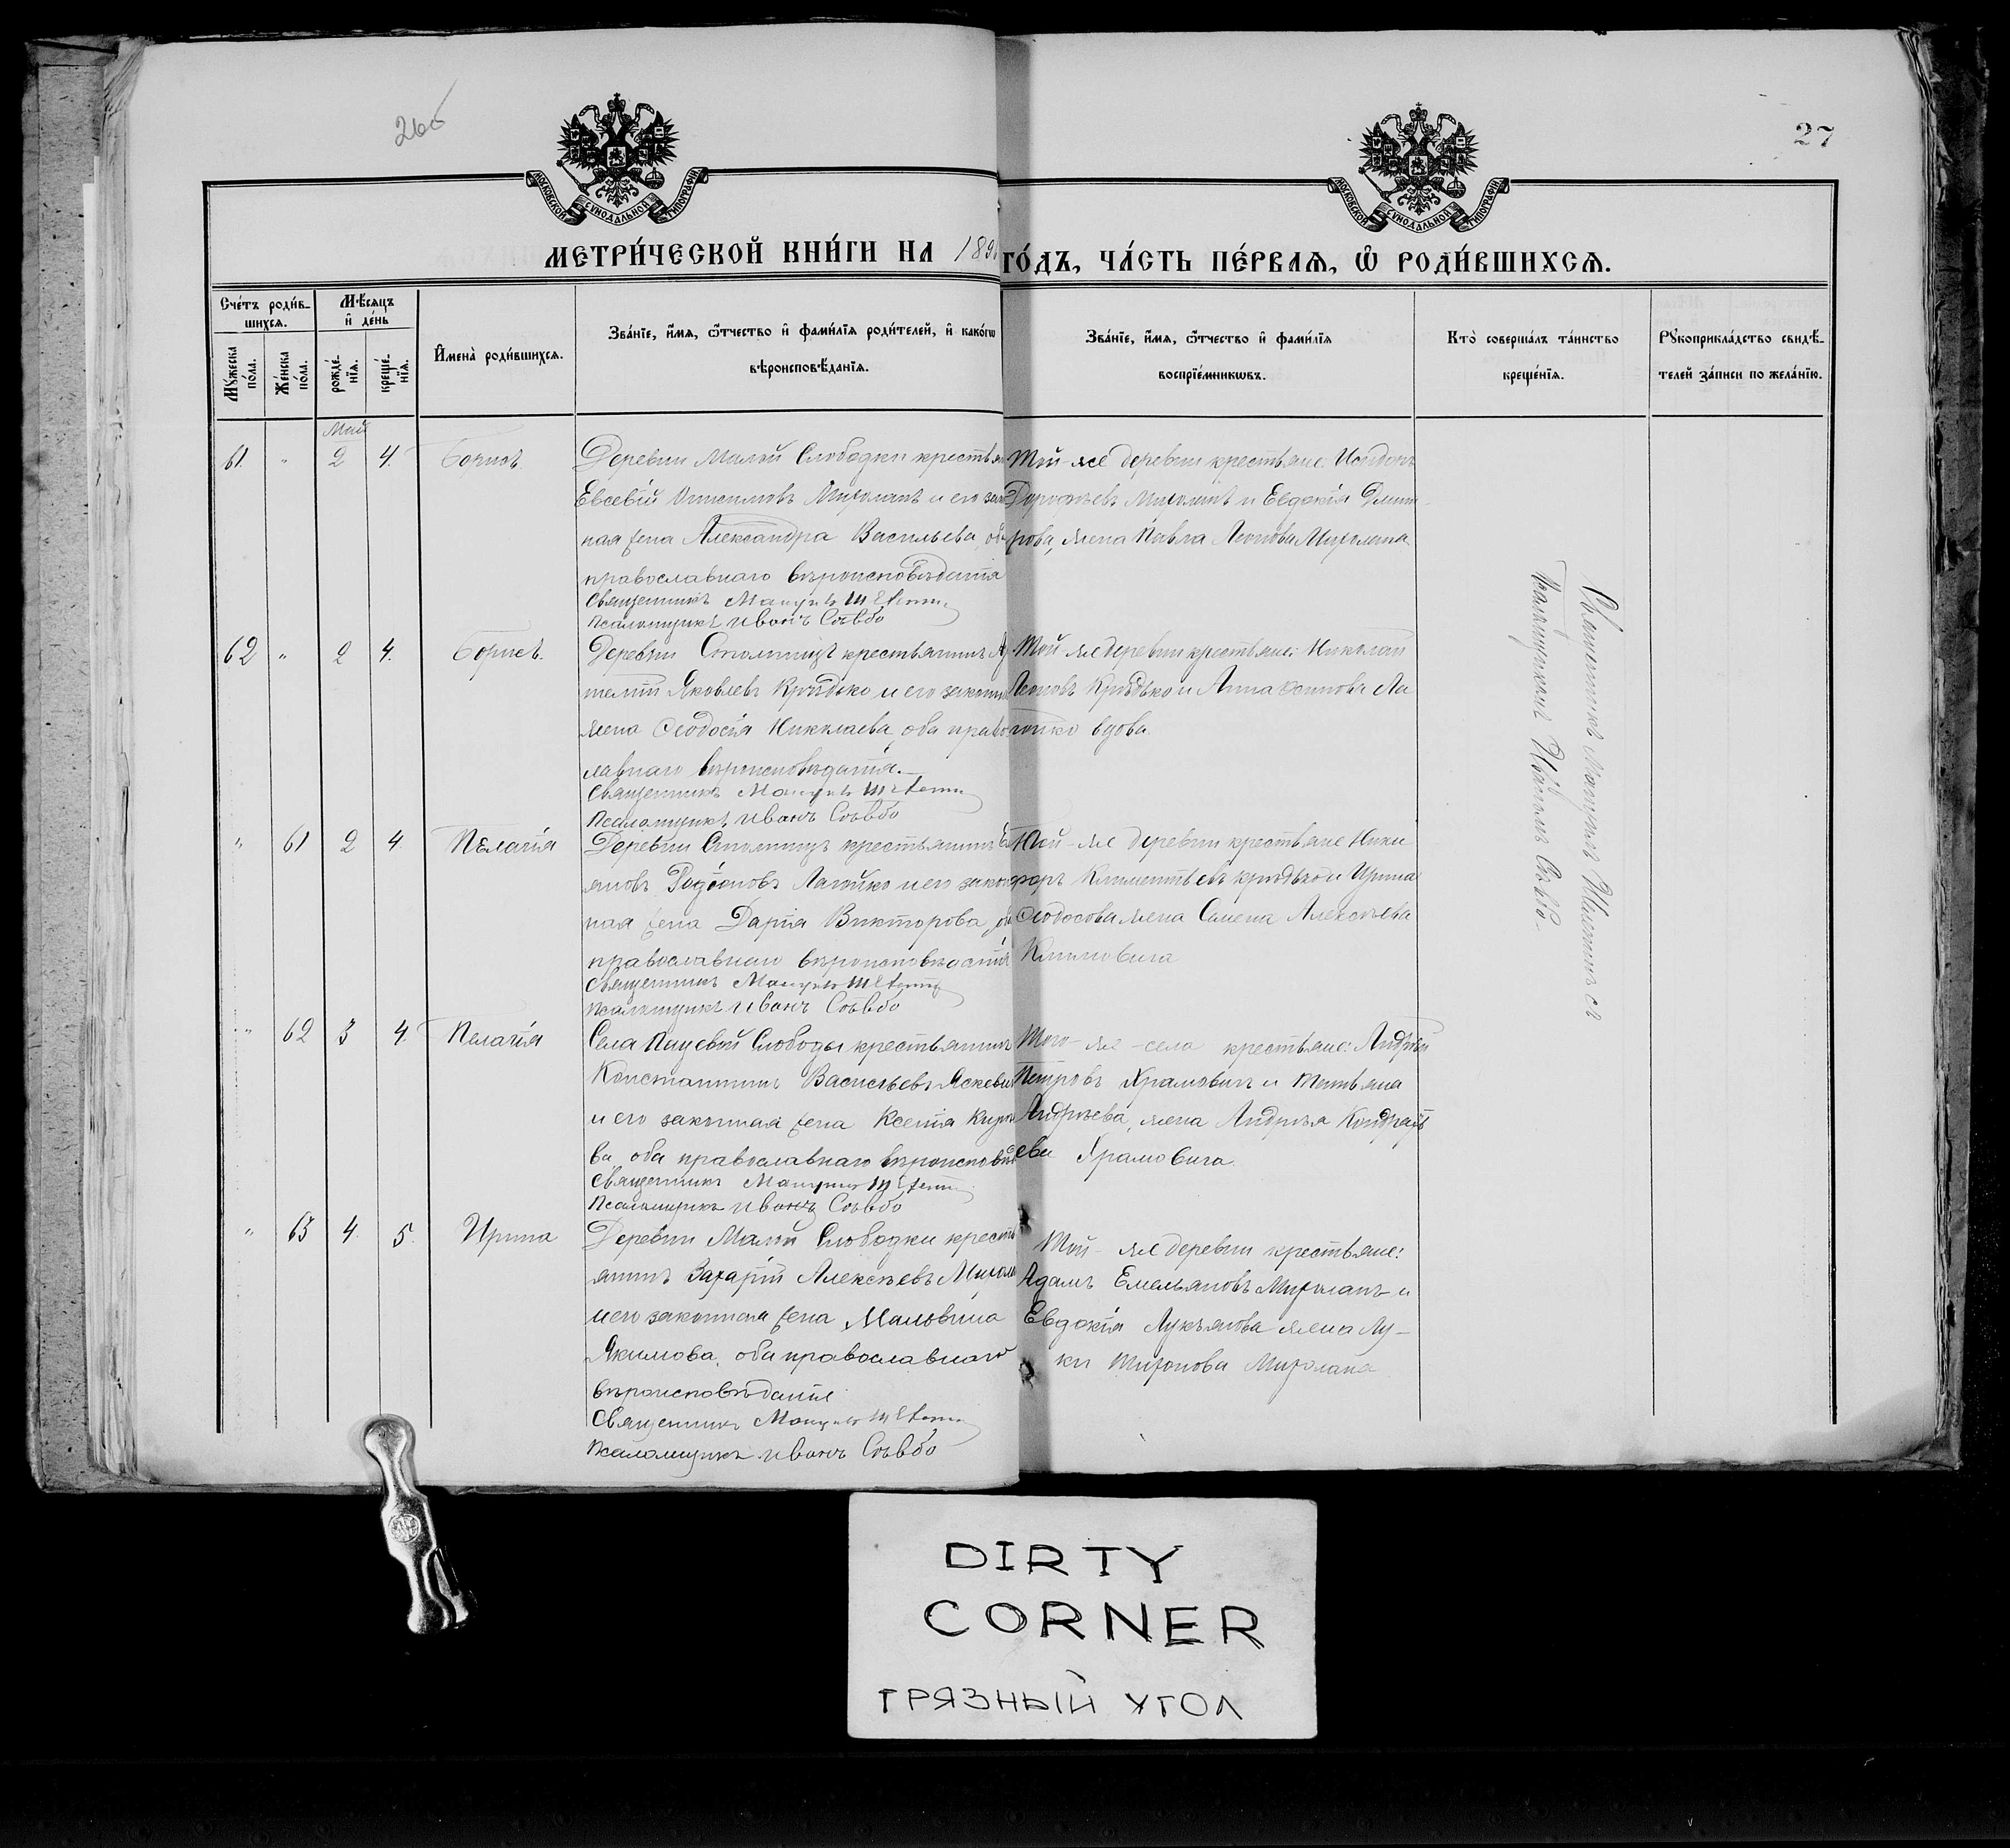 266
27
МОСКОВСКОЙ СѴНОДАЛЬНОЙ ТИПОГРАФІИ
МОСКОВСКОЙ СѴНОДАЛЬНОЙ ТИПОГРАФІИ
МЕТРИ́ЧЕСКОЙ КНИ́ГИ НА 189
ГО́ДЪ, ЧА́СТЬ ПЕ́РВАѦ, Ѡ҆ РОДИ́ВШИХСѦ.
Сче́тъ роди́в-
шихсѧ.
Мꙋ́жеска по́ла.
Же́нска по́ла.
Мѣ́сѧцъ и҆ де́нь
рожде́-нїѧ.
креще́-нїѧ.
И҆мена̀ роди́вшихсѧ.
Зва́нїе, и҆́мѧ, ѻ҆́тчество и҆ фами́лїѧ роди́телей, и҆ како́гѡ
вѣроисповѣ́данїѧ.
Зва́нїе, и҆́мѧ, ѻ҆́тчество и҆ фами́лїѧ
воспрїе́мникѡвъ.
Кто̀ соверша́лъ та́инство
креще́нїѧ.
Рꙋкоприкла́дство свидѣ́-
телей за́писи по жела́нїю.
Май
61. " 2 4. Борисъ
Деревни Малой Слободки крестьян
Евсевій Онисимовъ Михолапъ и его зако
ная жена Александра Васильева, оба
православнаго вѣроисповѣданія
Священникъ
псаломщикъ Иванъ Соввбо
Той-же деревни крестьяне: Исидоръ
Дорофѣевъ Михолапъ и Евдокія Димит-
рова, жена Павла Леонова Михолапа
62 " 2 4. Борисъ.
Деревни крестьянинъ
Яковлевъ Крядько и его законн
жена Ѳеодосія Николаева, оба право
лавнаго вѣроисповѣданія.
Священникъ
псаломщикъ Иванъ Соввбо
Той-же деревни крестьяне: Николай
Леоновъ Крядько и Анна Осипова Ла
гойко вдова.
" 61 2 4 Пелагія
Деревни крестьянинъ
яновъ Родіоновъ Лагойко и его закон
ная жена Дарія Викторова, оба
православнаго вѣроисповѣданія
Священникъ
псаломщикъ Иванъ Соввбо
Той-же деревни крестьяне Ники
форъ Климентьевъ Крядько и Ирина
Ѳеодосова жена Семена Алексѣева
Климовича
" 62 3 4. Пелагія
Села Пацевой Слободы крестьянинъ
Константинъ Васильевъ Яскеви
и его законная жена Ксенія
ва оба православнаго вѣроисповѣд
Священникъ
псаломщикъ Иванъ Соввбо
Того-же-села крестьяне: Андрей
Петровъ Храмовичъ и Татьяна
Андреева, жена Андрея Кондрать
ева Храмовича.
" 63 4. 5. Ирина
Деревни Малой Слободки кресть
янинъ Захарій Алексѣевъ Михола
и его законная жена
Якимова, оба православнаго
вѣроисповѣданія
Священникъ
псаломщикъ Иванъ Соввбо
Той-же деревни крестьяне:
Адамъ Емельяновъ Михолапъ и
Евдокія Лукьянова жена Лу-
ки Миронова Михолапа
Священникъ
псаломщикомъ
DIRTY
CORNER
ГРЯЗНЫЙ УГОЛ